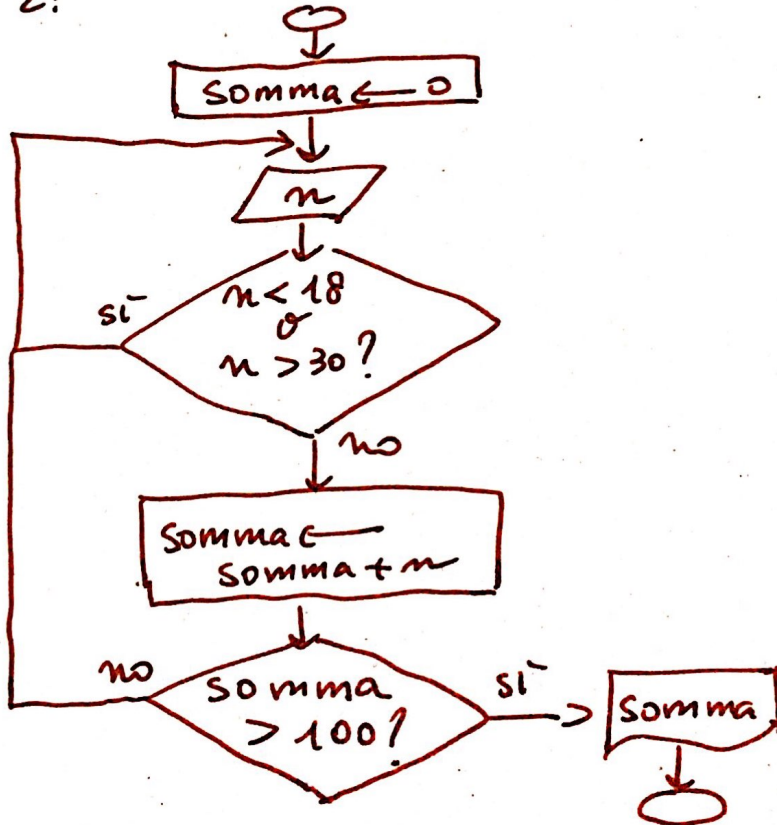 2.
somma ← 0
n
n < 18
o
n > 30?
sì
no
somma ←
somma + n
somma
> 100?
no
sì
somma